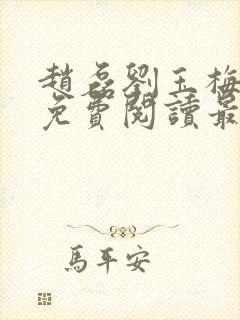 趙磊劉玉梅
免費閱讀最
馬平安